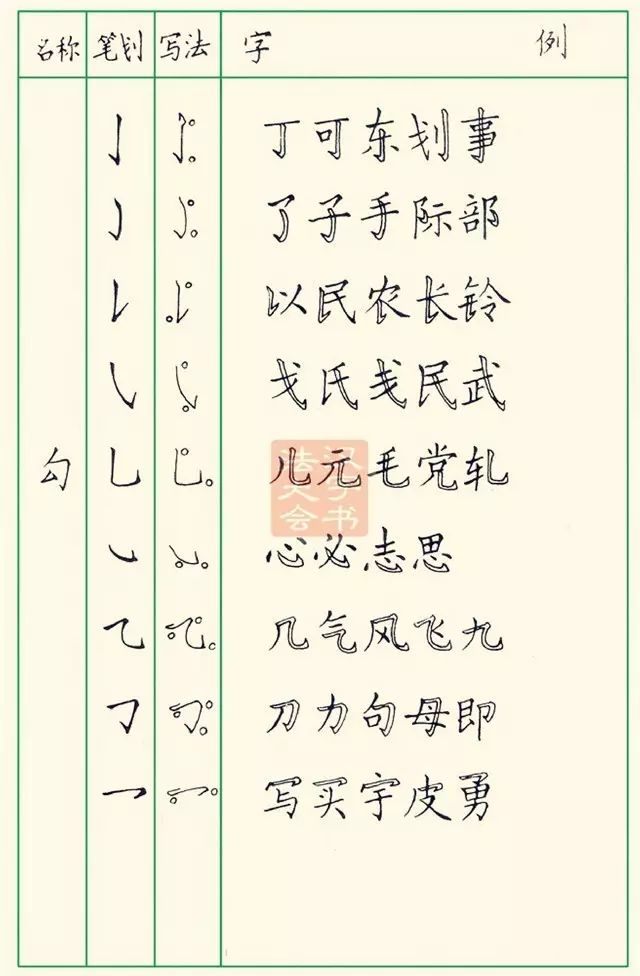 名称 笔划 写法 字 例
丁可东划事
了子手际部
以民农长铃
戈氏戋民武
勾 儿元毛党轧
心必志思
几气风飞九
刀力句母即
写买宇皮勇
汉字书
法大会